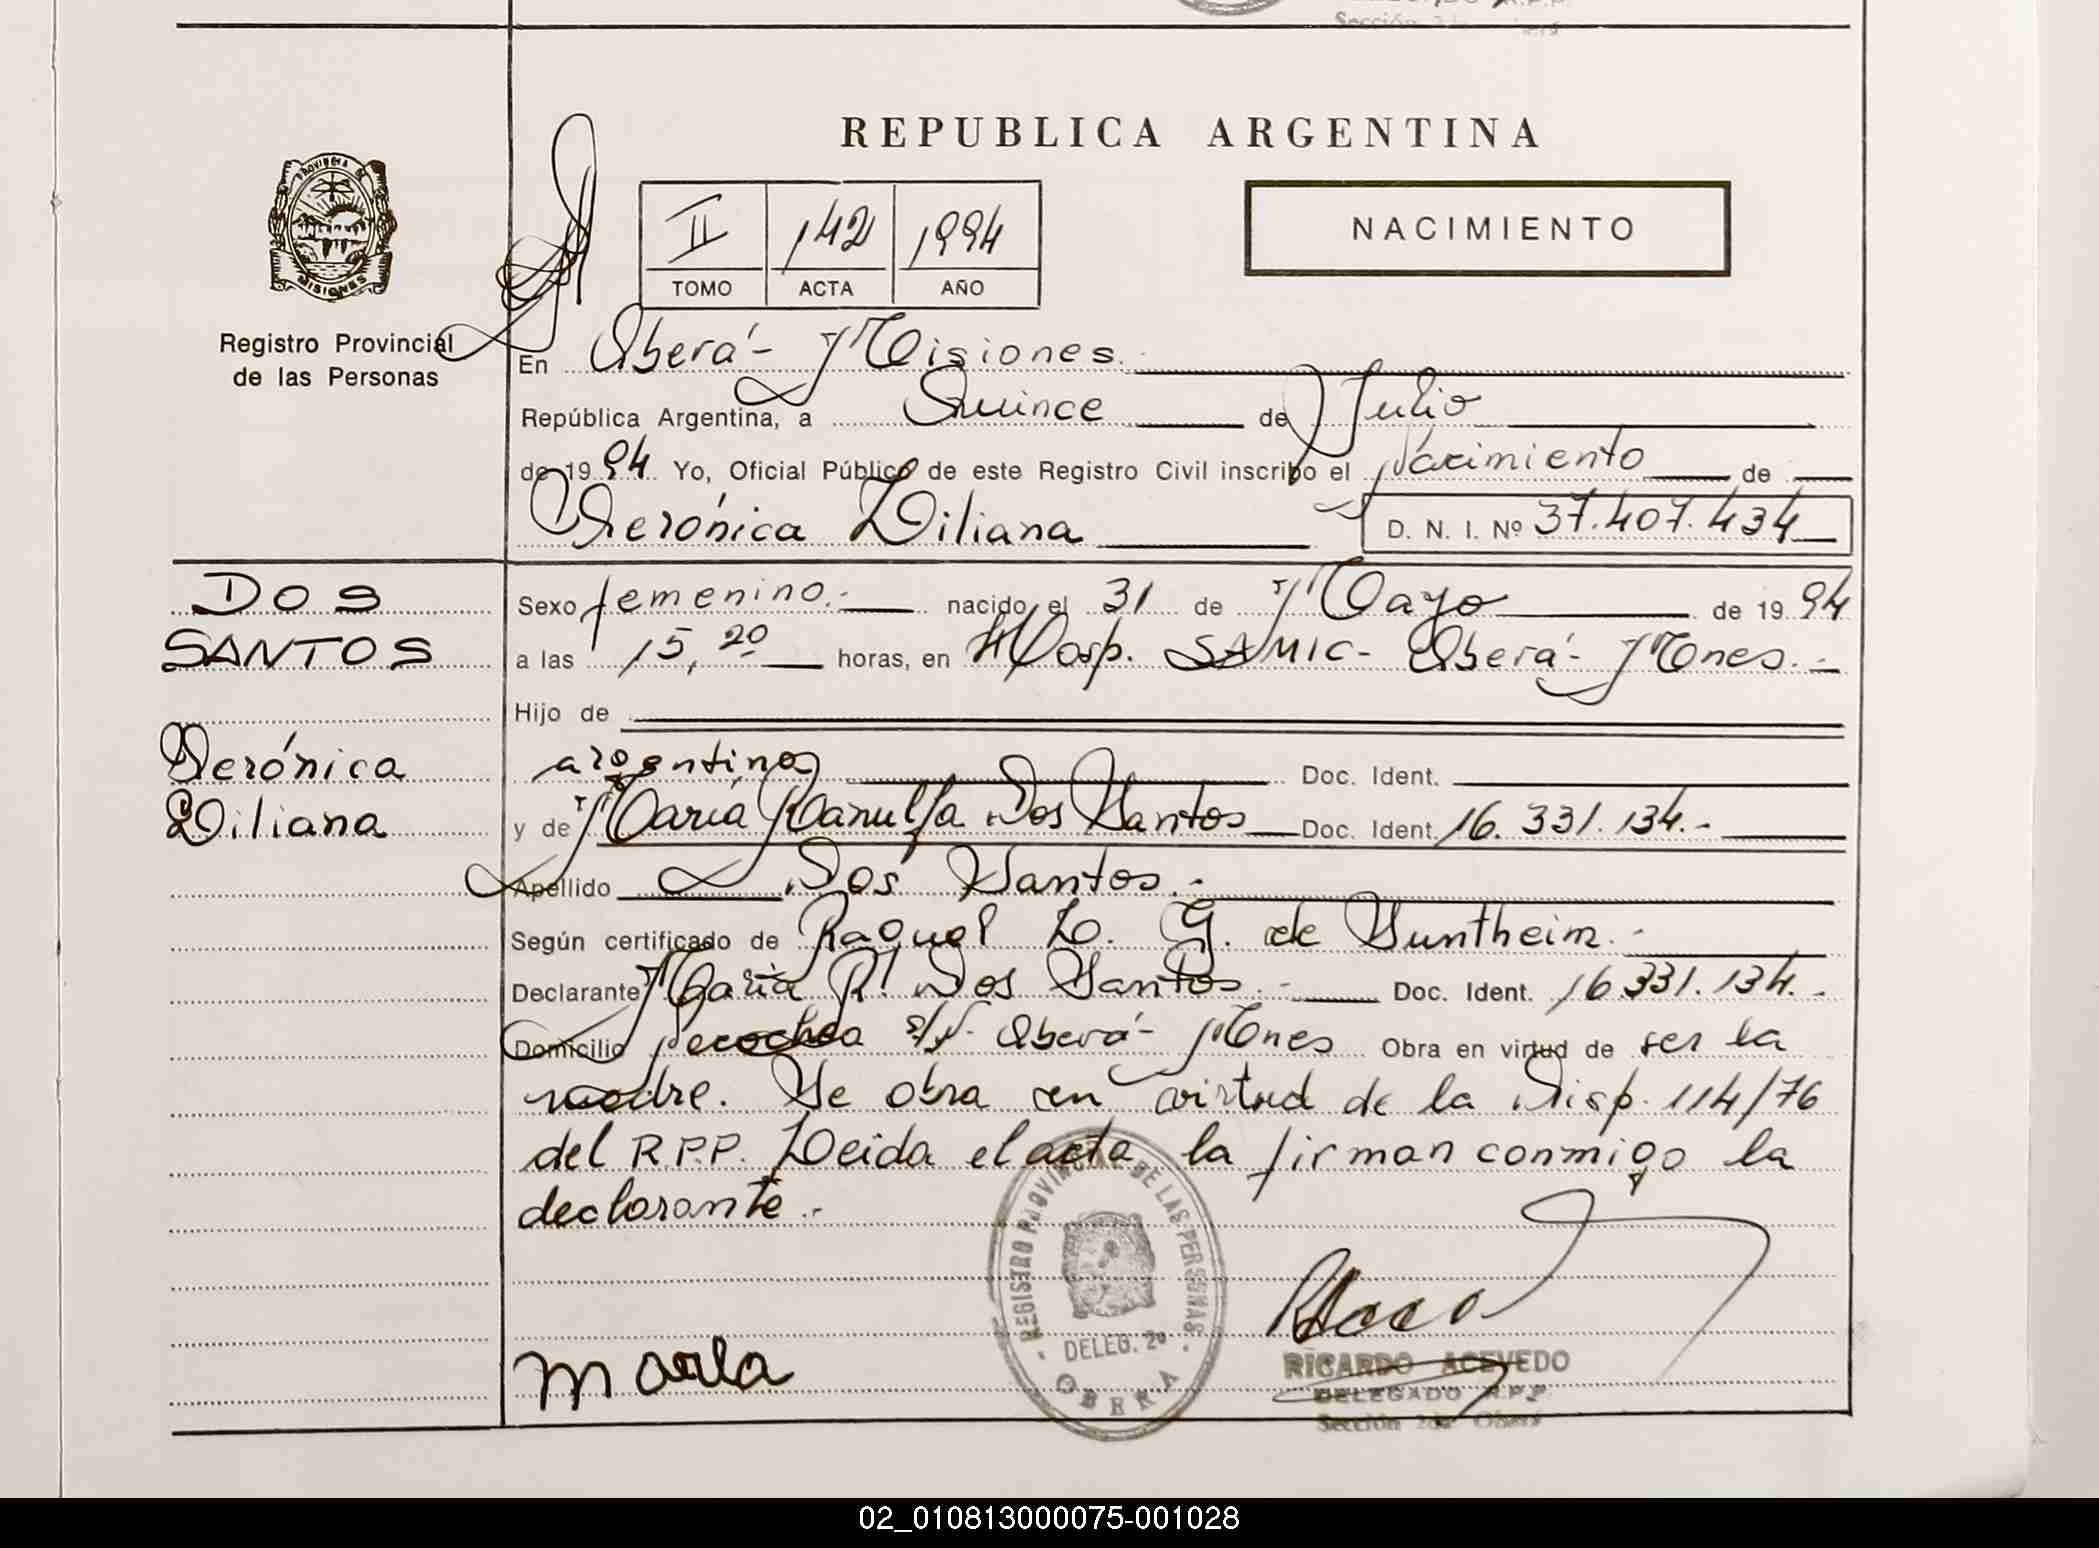 REPUBLICA ARGENTINA
PROVINCIA DE
MISIONES
II 142 1994
TOMO ACTA AÑO
NACIMIENTO
Registro Provincial
de las Personas
En Oberá - Misiones.
República Argentina, a Quince de Julio
de 1994. Yo, Oficial Público de este Registro Civil inscribo el Nacimiento de
Verónica Liliana D. N. I. Nº 37.407.434
DOS
SANTOS
Verónica
Liliana
Sexo femenino.- nacido el 31 de Mayo de 1994
a las 15,20 horas, en Hosp. SAMIC - Oberá - Mones.-
Hijo de
argentina Doc. Ident.
y de María Ranulfa Dos Santos Doc. Ident. 16.331.134.-
Apellido Dos Santos.-
Según certificado de Raquel L. G. de Suntheim.-
Declarante María R. Dos Santos.- Doc. Ident. 16.331.134.-
Domicilio Necochea s/N- Oberá - Mones Obra en virtud de ser la
madre. Se obra en virtud de la Disp. 114/76
del R.P.P. Leida el acta la firman conmigo la
declarante.-
REGISTRO PROVINCIAL DE LAS PERSONAS
DELEG. 2º
OBERA
María
RICARDO ACEVEDO
DELEGADO R.P.P.
Sección 2da Oberá
02_010813000075-001028